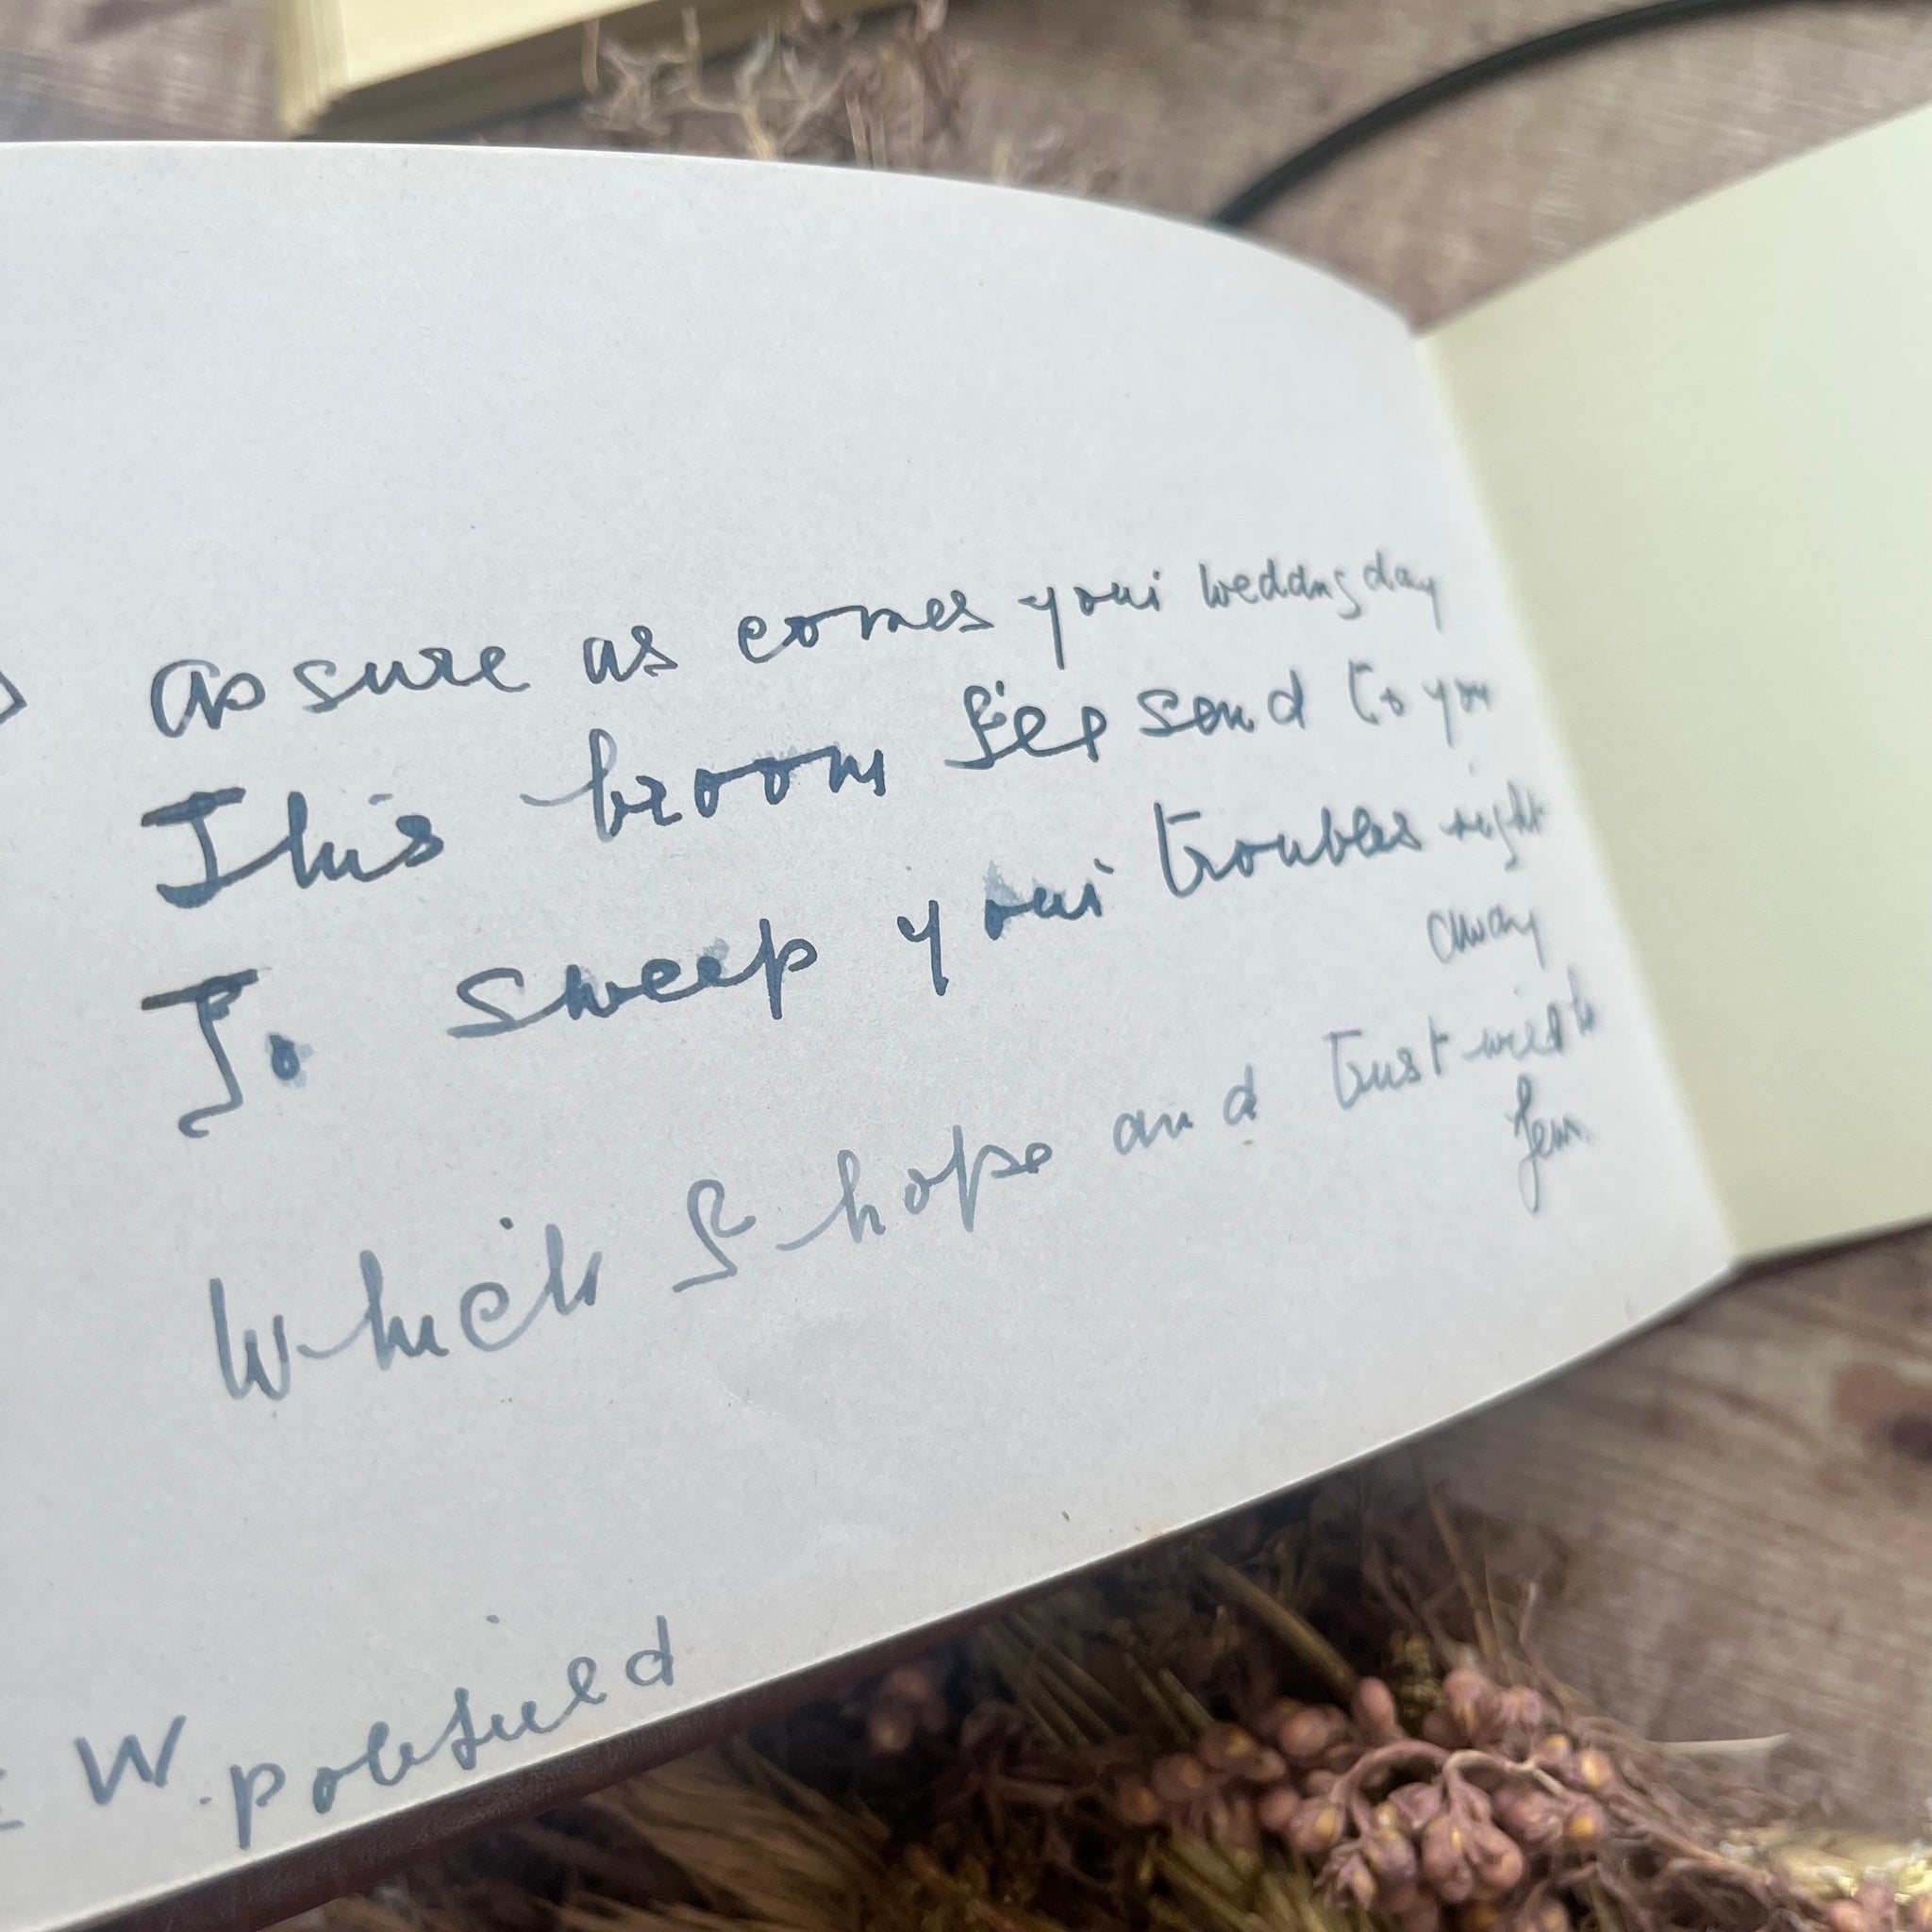 as sure as comes your wedding day
This broom I'll send to you
To sweep your troubles right
away
Which I hope and trust will be
few.
W.